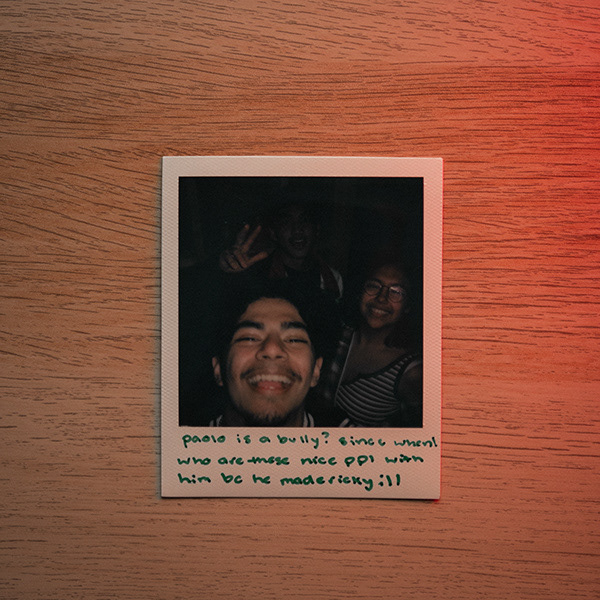 paolo is a bully? since when!
who are these nice ppl with
him bc he made ricky :((